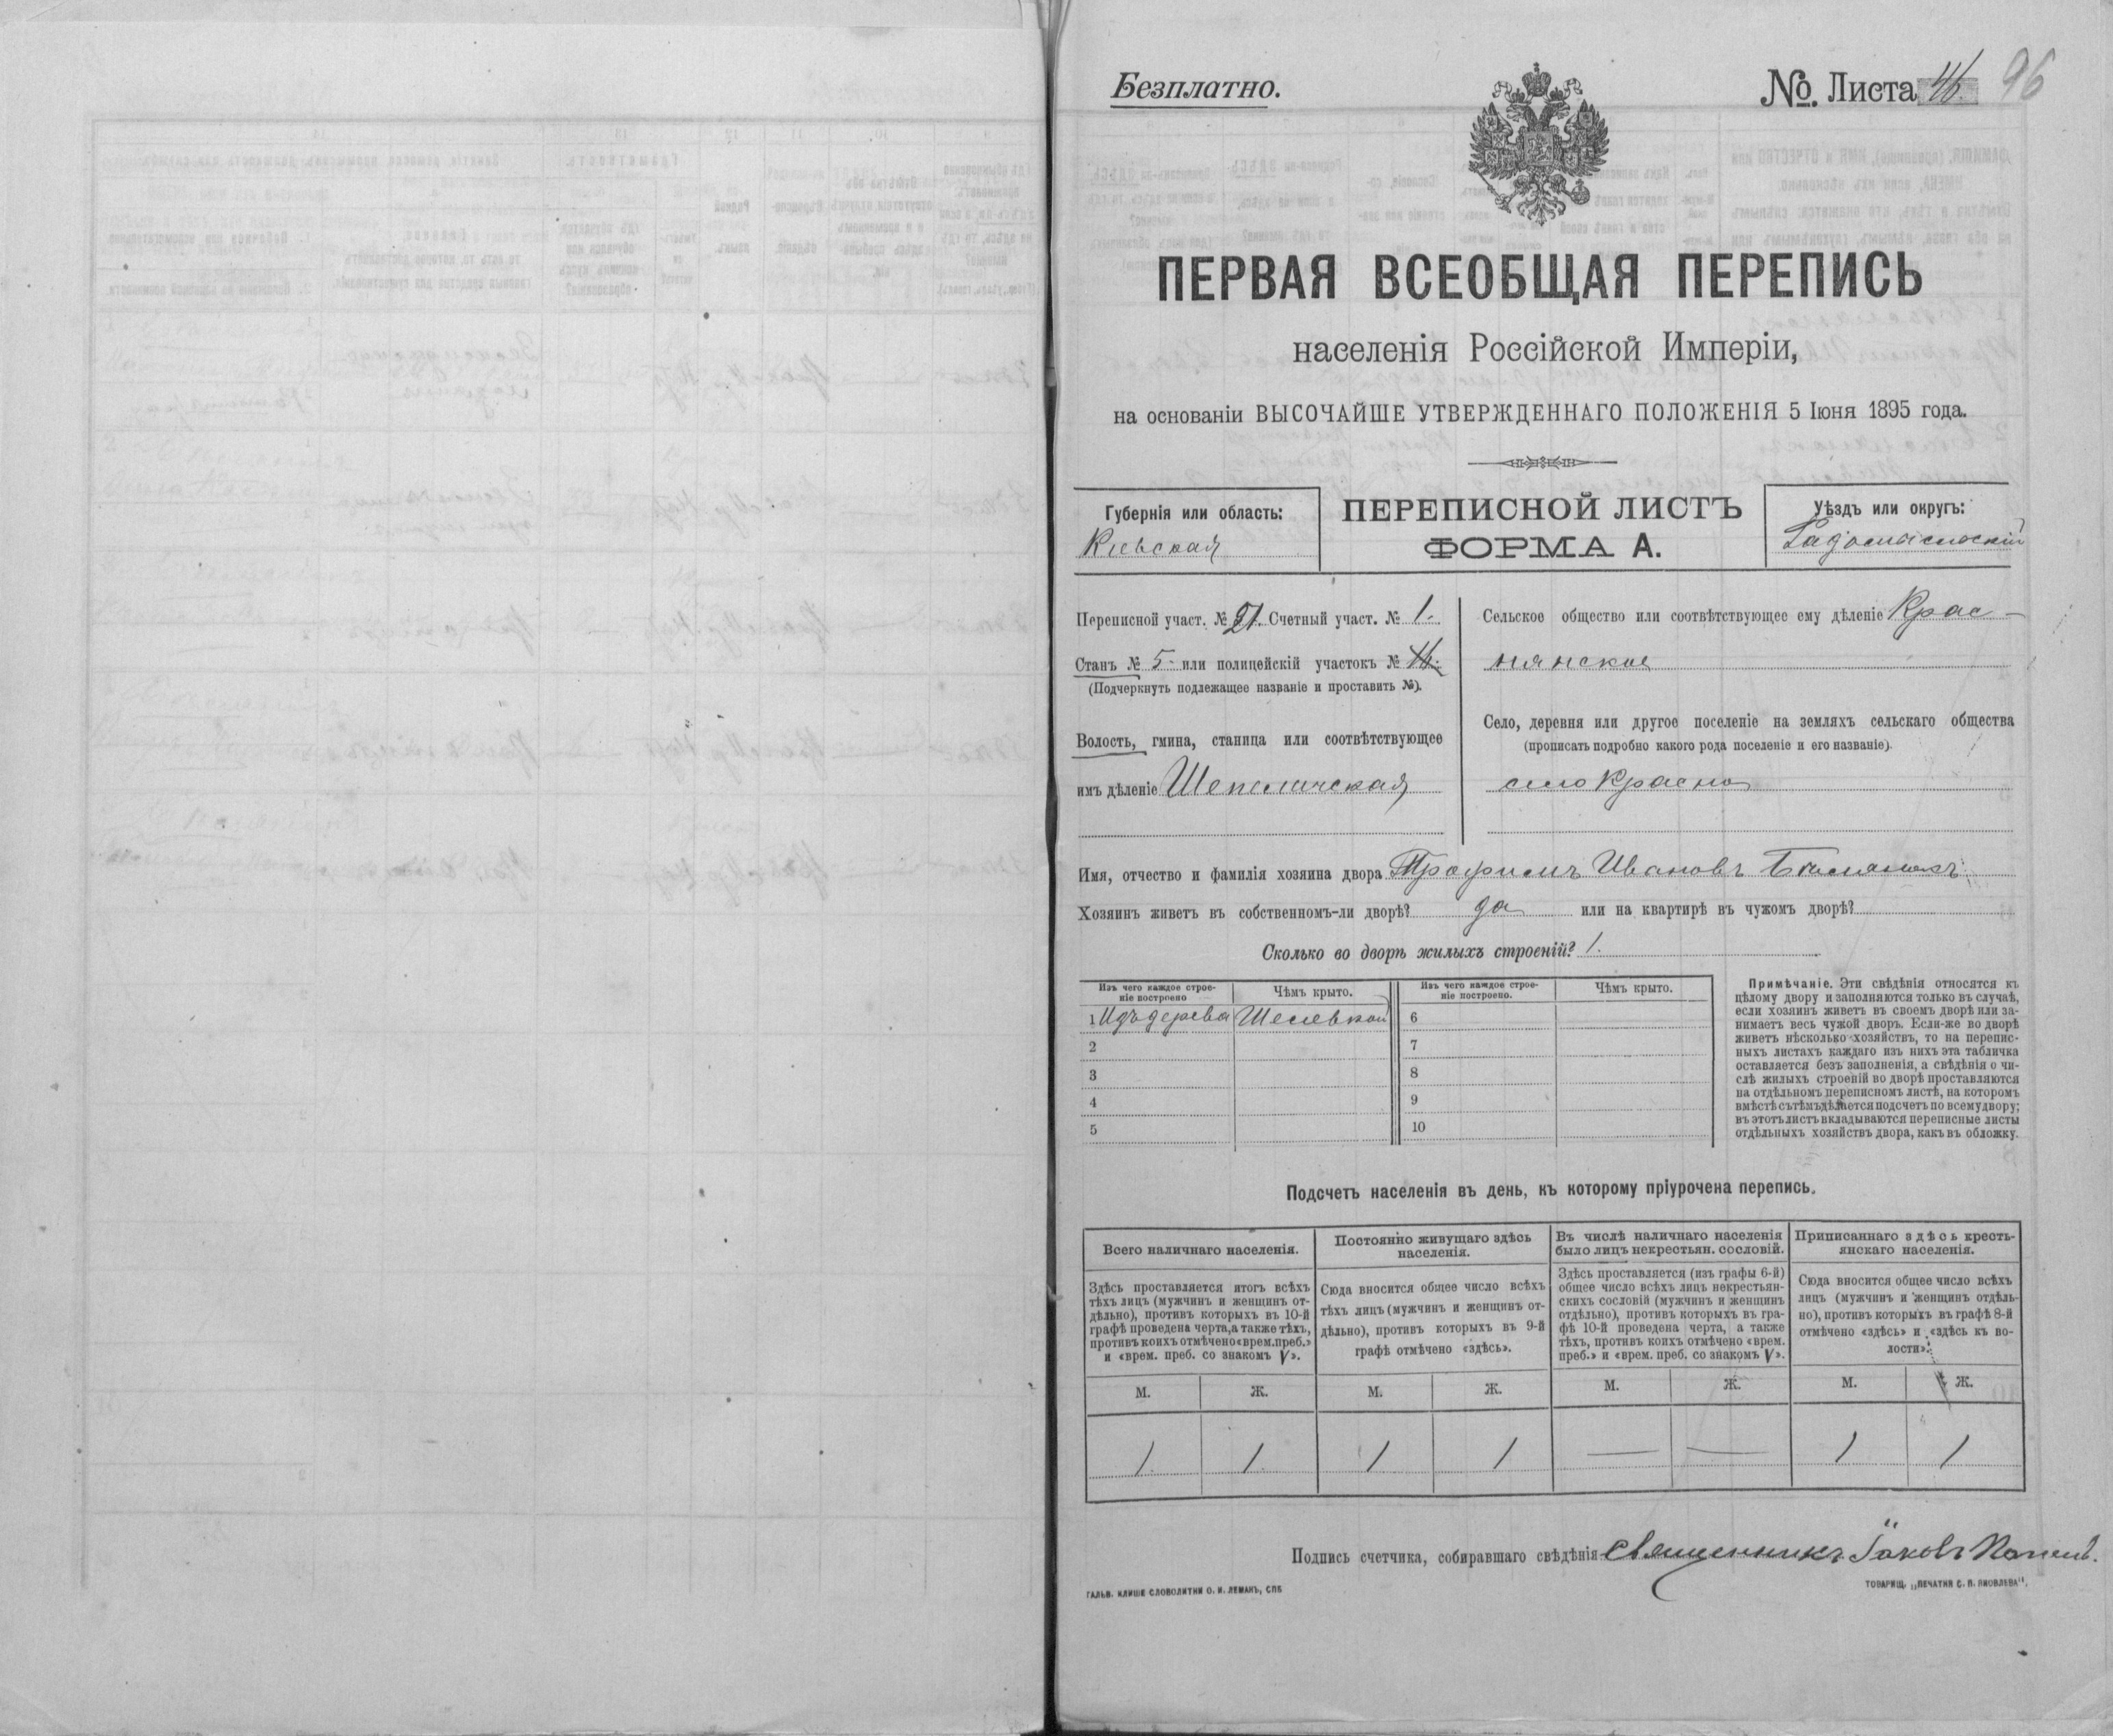 Безплатно.
№. Листа 46. 96
ПЕРВАЯ ВСЕОБЩАЯ ПЕРЕПИСЬ
населенія Россійской Имперіи,
на основаніи ВЫСОЧАЙШЕ УТВЕРЖДЕННАГО ПОЛОЖЕНІЯ 5 Іюня 1895 года.
Губернія или область:
Кіевская
ПЕРЕПИСНОЙ ЛИСТЪ
ФОРМА А.
Уѣздъ или округъ:
Радомысльскій
Переписной участ. № 21. Счетный участ. № 1.
Станъ № 5 или полицейскій участокъ №
(Подчеркнуть подлежащее названіе и проставить №).
Волость, гмина, станица или соотвѣтствующее
имъ дѣленіе Шепеличская
Сельское общество или соотвѣтствующее ему дѣленіе Крас-
нянское
Село, деревня или другое поселеніе на земляхъ сельскаго общества
(прописать подробно какого рода поселеніе и его названіе).
село Красно
Имя, отчество и фамилія хозяина двора Трофимъ Ивановъ
Хозяинъ живетъ въ собственномъ-ли дворѣ? да или на квартирѣ въ чужомъ дворѣ?
Сколько во дворѣ жилыхъ строеній? 1.
Изъ чего каждое строе-
ніе построено
Чѣмъ крыто.
1 Изъ дерева Шелевкой
2
3
4
5
Изъ чего каждое строе-
ніе построено.
Чѣмъ крыто.
6
7
8
9
10
Примѣчаніе. Эти свѣдѣнія относятся къ
цѣлому двору и заполняются только въ случаѣ,
если хозяинъ живетъ въ своемъ дворѣ или за-
нимаетъ весь чужой дворъ. Если-же во дворѣ
живетъ нѣсколько хозяйствъ, то на перепис-
ныхъ листахъ каждаго изъ нихъ эта табличка
оставляется безъ заполненія, а свѣдѣнія о чи-
слѣ жилыхъ строеній во дворѣ проставляются
на отдѣльномъ переписномъ листѣ, на которомъ
вмѣстѣ съ тѣмъ дѣлается подсчетъ по всему двору;
въ этотъ листъ вкладываются переписные листы
отдѣльныхъ хозяйствъ двора, какъ въ обложку.
Подсчетъ населенія въ день, къ которому пріурочена перепись.
Всего наличнаго населенія.
Здѣсь проставляется итогъ всѣхъ
тѣхъ лицъ (мужчинъ и женщинъ от-
дѣльно), противъ которыхъ въ 10-й
графѣ проведена черта, а также тѣхъ,
противъ коихъ отмѣчено «врем. преб.»
и «врем. преб. со знакомъ V».
М. Ж.
1 1
Постоянно живущаго здѣсь
населенія.
Сюда вносится общее число всѣхъ
тѣхъ лицъ (мужчинъ и женщинъ от-
дѣльно), противъ которыхъ въ 9-й
графѣ отмѣчено «здѣсь».
М. Ж.
1 1
Въ числѣ наличнаго населенія
было лицъ некрестьян. сословій.
Здѣсь проставляется (изъ графы 6-й)
общее число всѣхъ лицъ некрестьян-
скихъ сословій (мужчинъ и женщинъ
отдѣльно), противъ которыхъ въ гра-
фѣ 10-й проведена черта, а также
тѣхъ, противъ коихъ отмѣчено «врем.
преб.» и «врем. преб. со знакомъ V».
М. Ж.
— —
Приписаннаго здѣсь кресть-
янскаго населенія.
Сюда вносится общее число всѣхъ
лицъ (мужчинъ и женщинъ отдѣль-
но), противъ которыхъ въ графѣ 8-й
отмѣчено «здѣсь» и «здѣсь въ во-
лости».
М. Ж.
1 1
Подпись счетчика, собиравшаго свѣдѣнія Священникъ Іаковъ
ГАЛЬВ. КЛИШЕ СЛОВОЛИТНИ О. И. ЛЕМАНЪ, СПБ
ТОВАРИЩ. „ПЕЧАТНЯ С. П. ЯКОВЛЕВА".